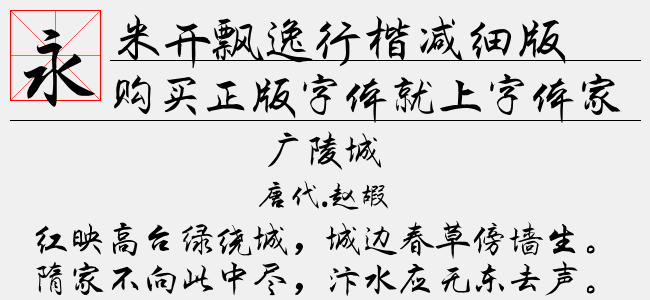 永
米开飘逸行楷减细版
购买正版字体就上字体家
广陵城
唐代.赵嘏
红映高台绿绕城，城边春草傍墙生。
隋家不向此中尽，汴水应无东去声。